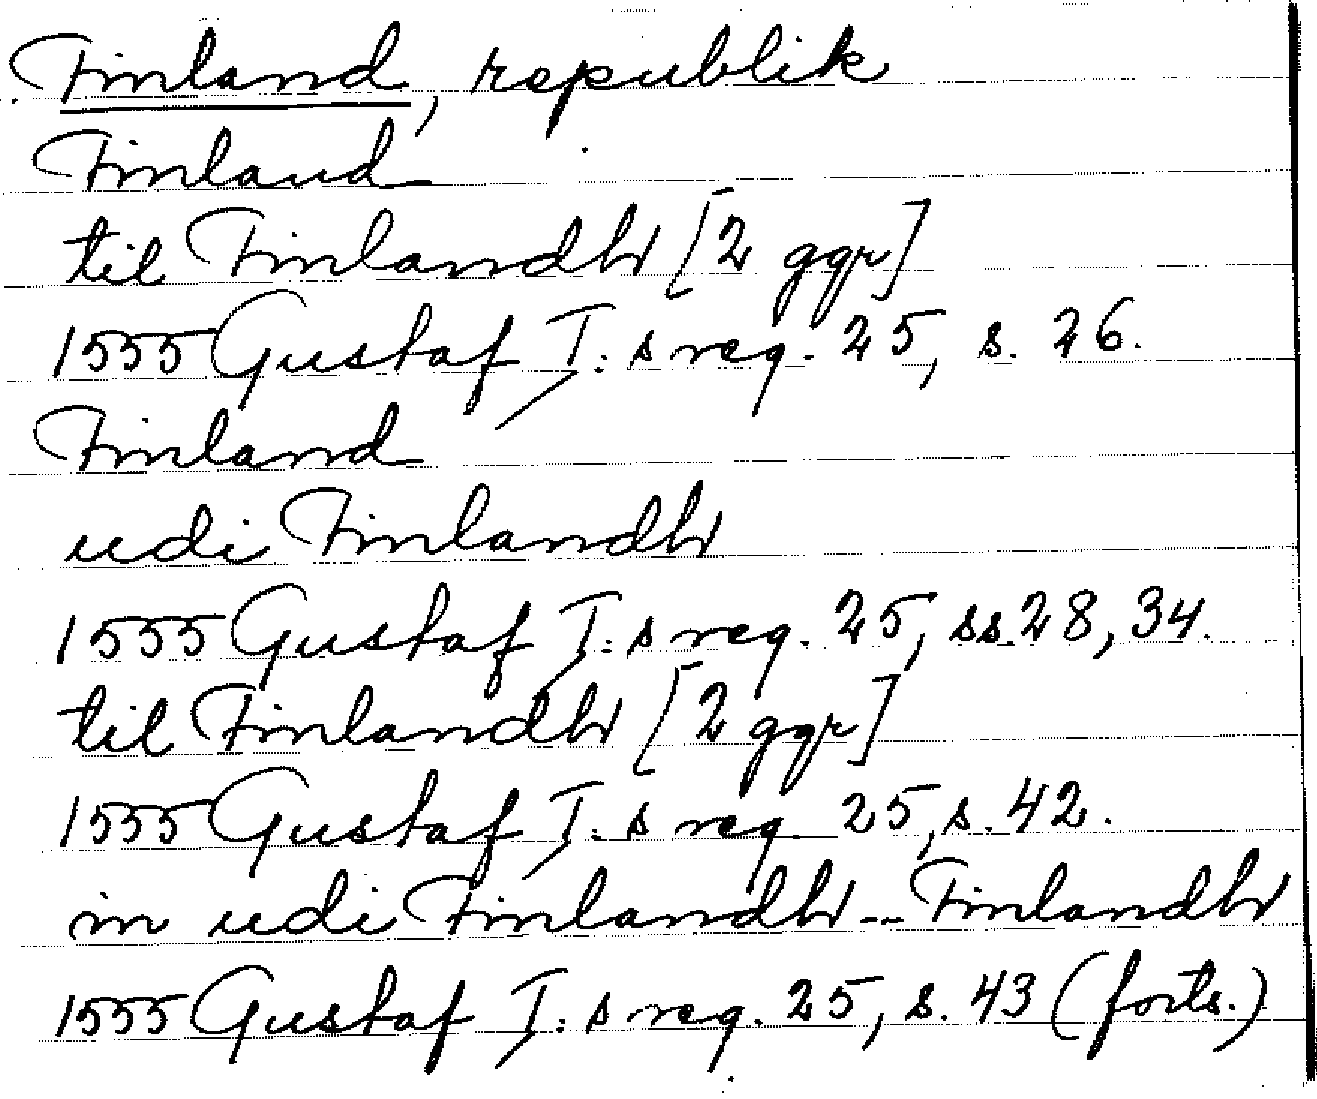 Finland, republik
Finland
til Finlandh [2 ggr]
1555 Gustaf I:s reg. 25, s. 26.
Finland
udi Finlandh
1555 Gustaf I:s reg. 25, ss. 28, 34.
til Finlandh [2 ggr]
1555 Gustaf I:s reg. 25, s. 42.
in udi Finlandh -- Finlandh
1555 Gustaf I:s reg. 25, s. 43 (forts.)